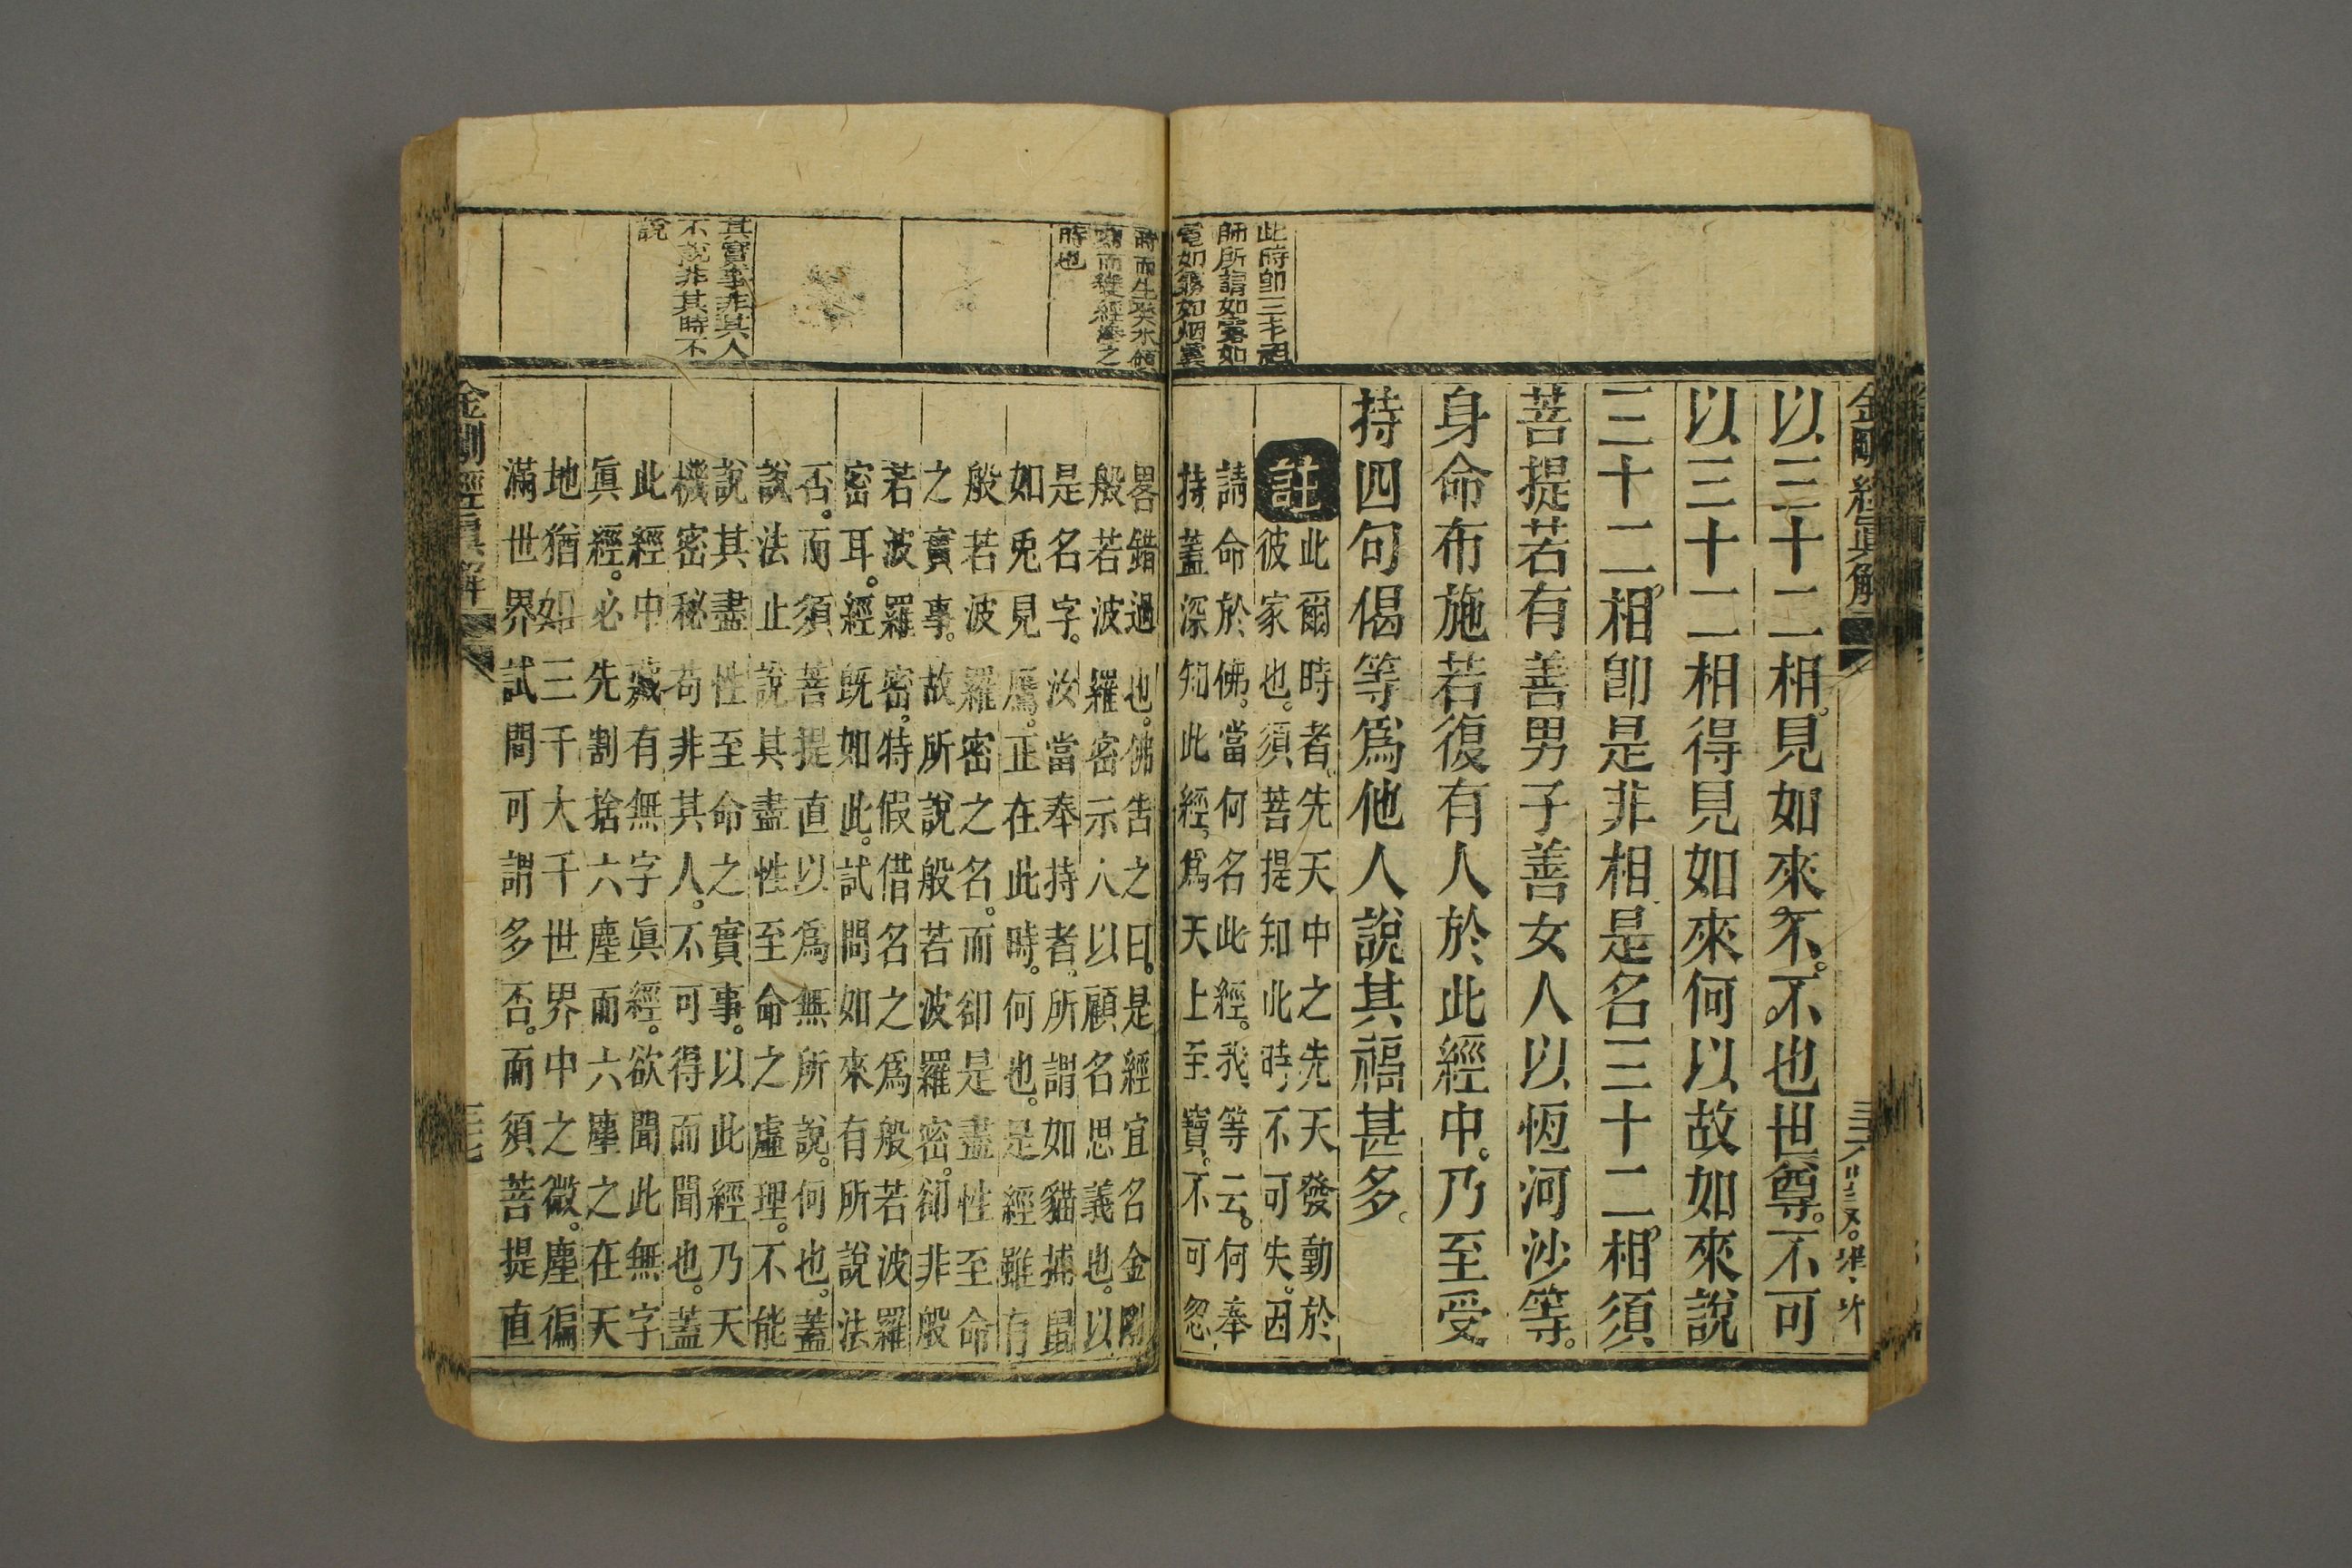 金剛經眞解
以三十二相見如來不不也世尊不可
以三十二相得見如來何以故如來說
三十二相卽是非相是名三十二相須
菩提若有善男子善女人以恆河沙等
身命布施若復有人於此經中乃至受
持四句偈等爲他人說其福甚多
註
此爾時者先天中之先天發動於
彼家也須菩提知此時不可失因
請命於佛當何名此經我等云何奉
持蓋深知此經爲天上至寶不可忽
此時卽三才祖
師所謂如露如
電如霧如烟
畧錯過也佛告之曰是經宜名金剛
般若波羅密示人以顧名思義也以
是名字汝當奉持者所謂如貓捕鼠
如兎見鷹正在此時何也是經雖有
般若波羅密之名而卻是盡性至命
之實事故所說般若波羅密卻非般
若波羅密特假借名之爲般若波羅
密耳經旣如此試問如來有所說法
否而須菩提直以爲無所說何也蓋
說法止說其盡性至命之虛理不能
說其盡性至命之實事以此經乃天
機密秘苟非其人不可得而聞也蓋
此經中藏有無字眞經欲聞此無字
眞經必先割捨六塵而六塵之在天
地猶如三千大千世界中之微塵徧
滿世界試問可謂多否而須菩提直
時而生癸水
而經之
時也
其實事非其人
不說非其時不
說
金剛經眞解
三七